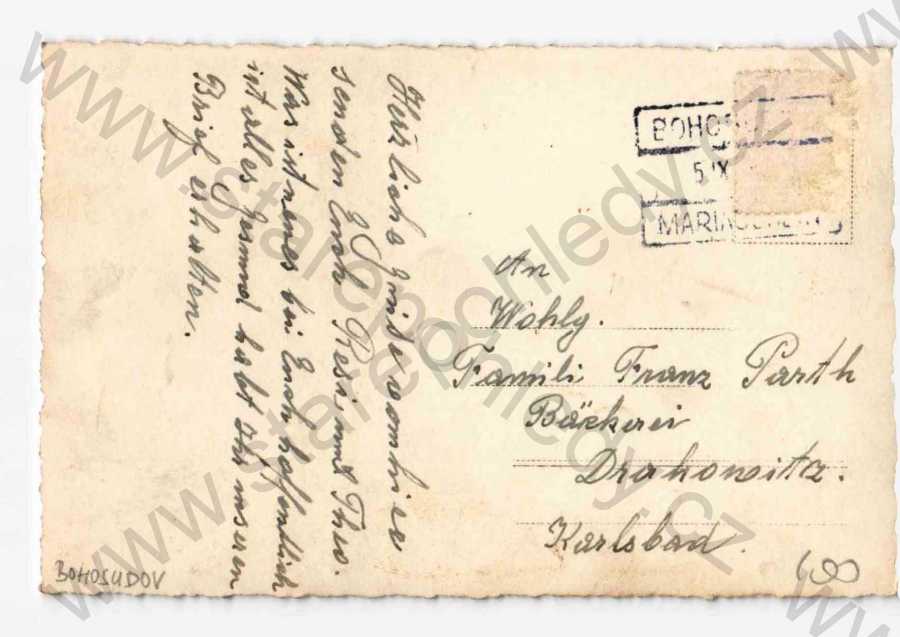 Herzliche Grüße vom hier
senden Euch Resi, und Theo.
Was ist neues bei Euch hoffentlich
ist alles Gesund habt Ihr unseren
Brief erhalten.
BOHOS
5 IX
MARIASCHEIN
An
Wohlg.
Famili Franz Parth
Bäckerei
Drahowitz.
Karlsbad.
BOHOSUDOV
600
www.starepohledy.cz
www.starepohledy.cz